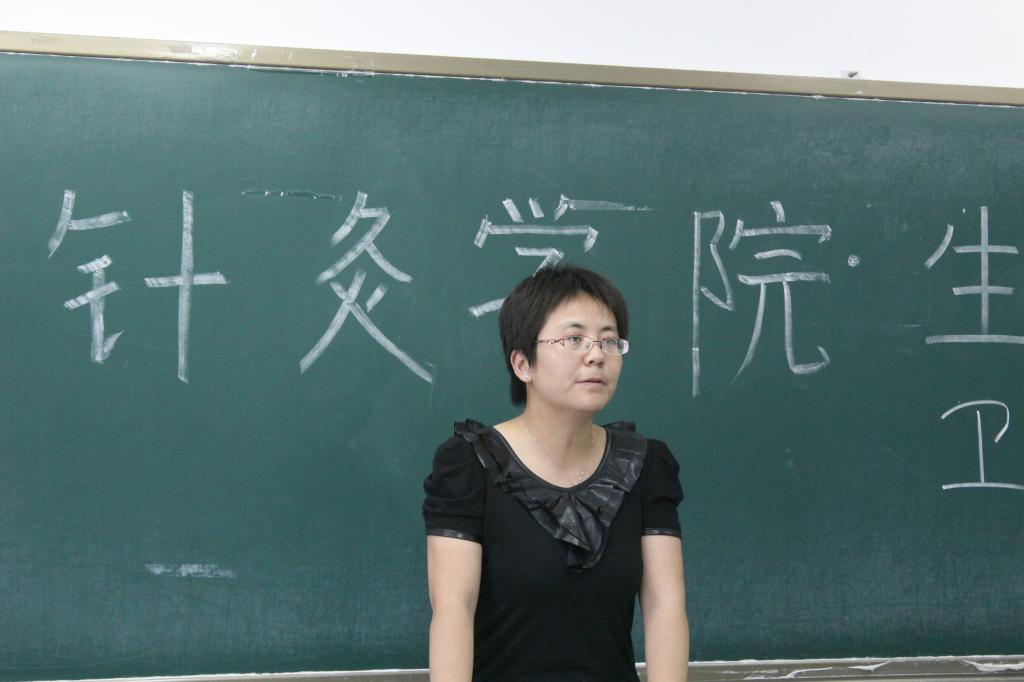 针灸学院·生
卫